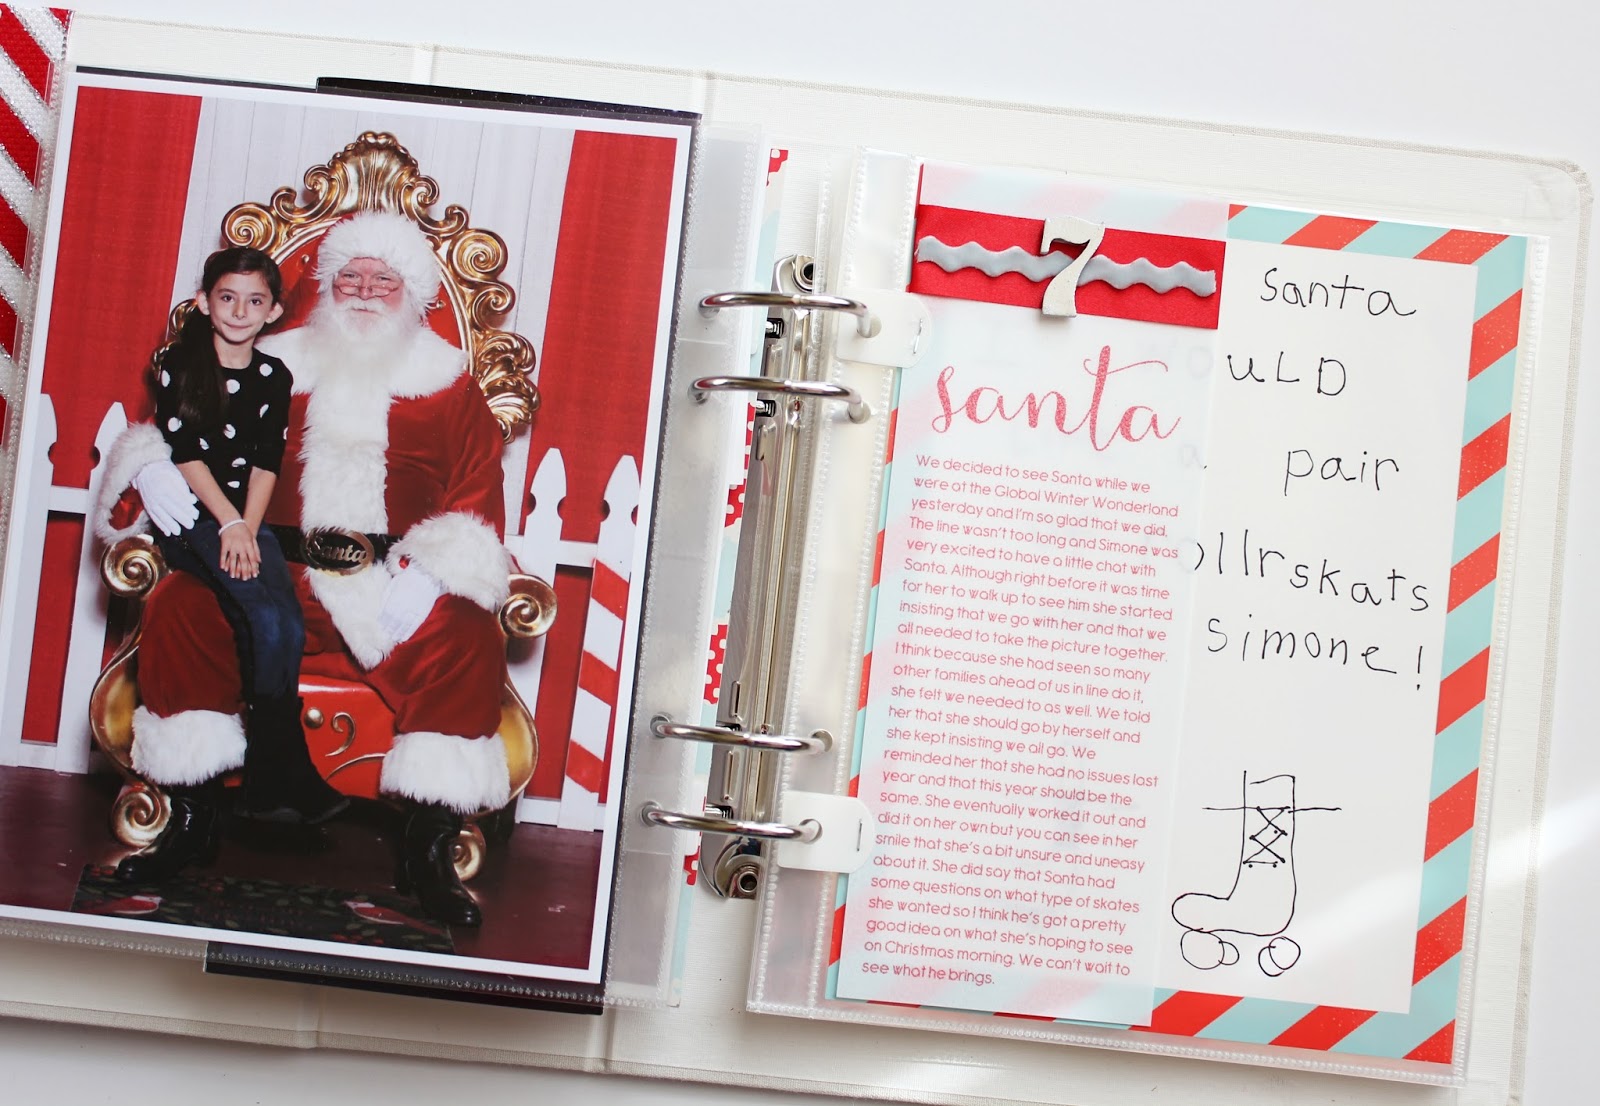 Santa
7
santa
We decided to see Santa while we
were at the Global Winter Wonderland
yesterday and I'm so glad that we did.
The line wasn't too long and Simone was
very excited to have a little chat with
Santa. Although right before it was time
for her to walk up to see him she started
insisting that we go with her and that we
all needed to take the picture together.
I think because she had seen so many
other families ahead of us in line do it,
she felt we needed to as well. We told
her that she should go by herself and
she kept insisting we all go. We
reminded her that she had no issues last
year and that this year should be the
same. She eventually worked it out and
did it on her own but you can see in her
smile that she's a bit unsure and uneasy
about it. She did say that Santa had
some questions on what type of skates
she wanted so I think he's got a pretty
good idea on what she's hoping to see
on Christmas morning. We can't wait to
see what he brings.
santa
uLD
pair
ollrskats
simone!